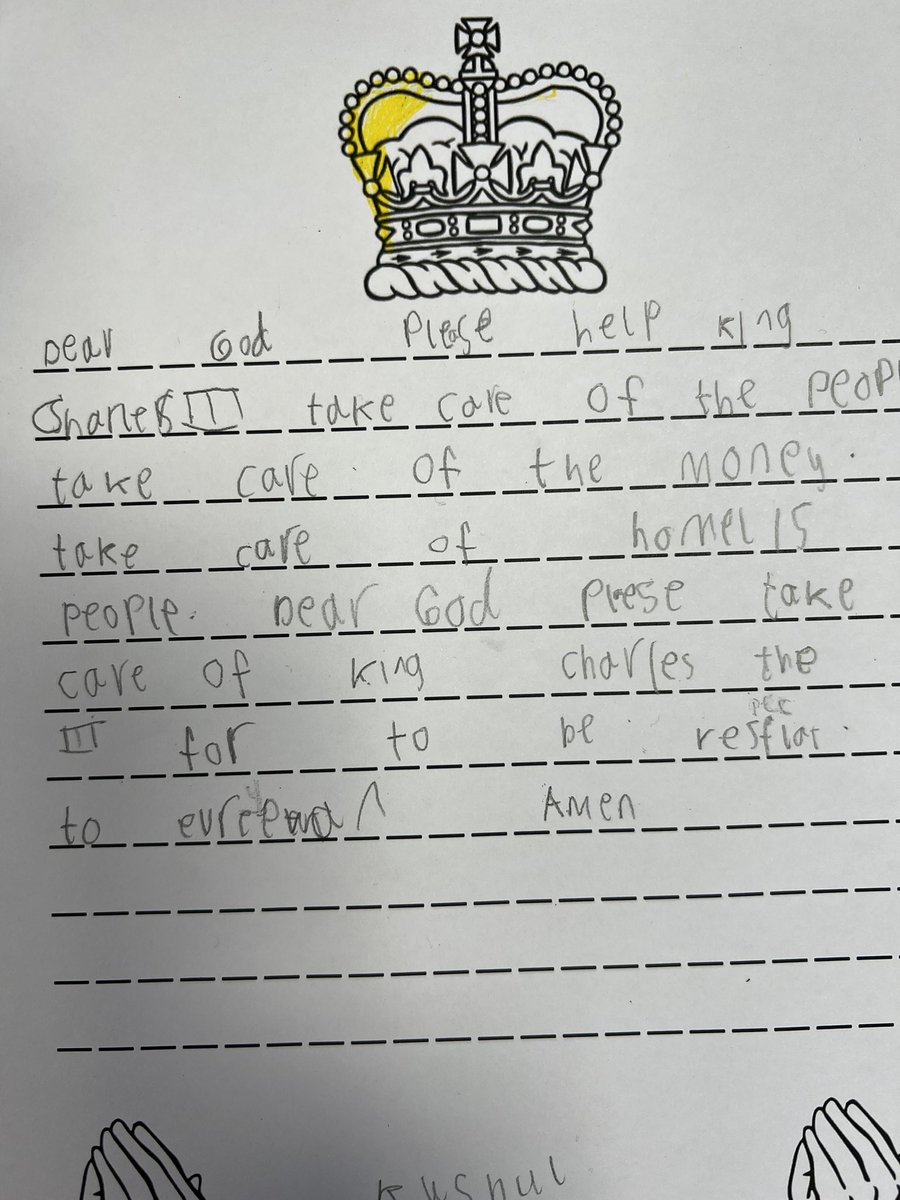 Dear God Please help king
Sharles III take care of the peop
take care. of the money.
take care of homelis
people. Dear God Plese take
care of king charles the
III for to be resflat.
to Amen